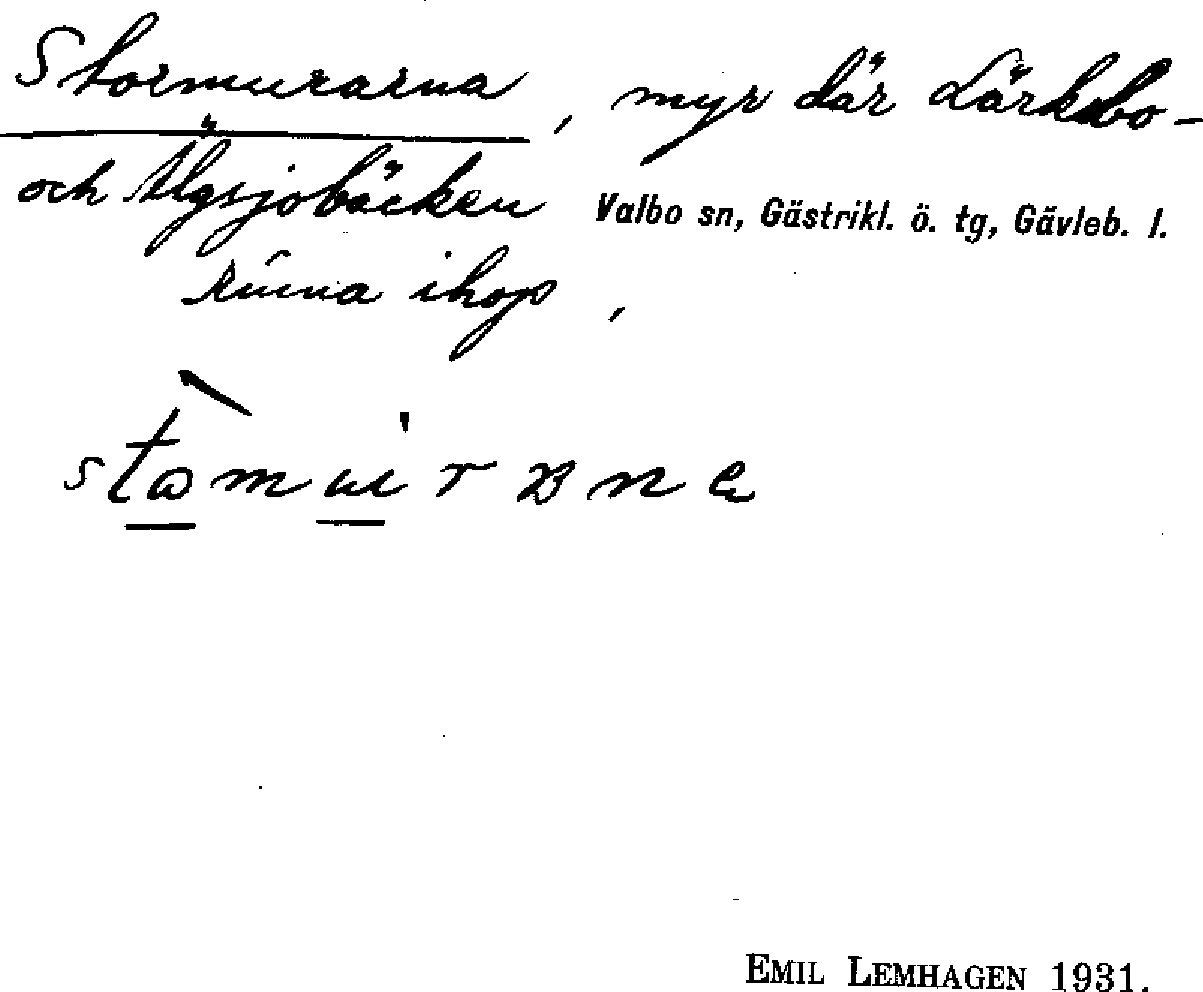 Stormurarna, myr där Lärkbo-
och Älgsjobäcken
Valbo sn, Gästrikl. ö. tg, Gävleb. l.
rinna ihop,
EMIL LEMHAGEN 1931.